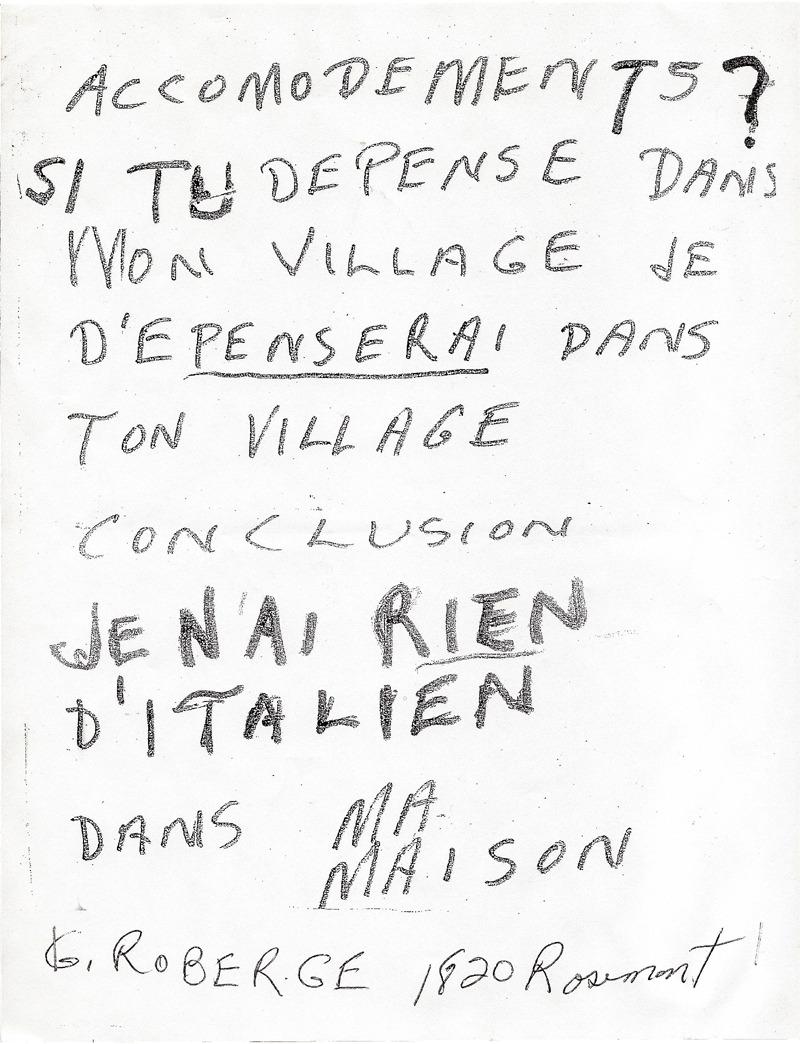 ACCOMODEMENTS?
SI TU DEPENSE DANS
MON VILLAGE JE
D'EPENSERAI DANS
TON VILLAGE
CONCLUSION
JE N'AI RIEN
D'ITALIEN
DANS MA
MAISON
G. ROBERGE 1820 Rosemont